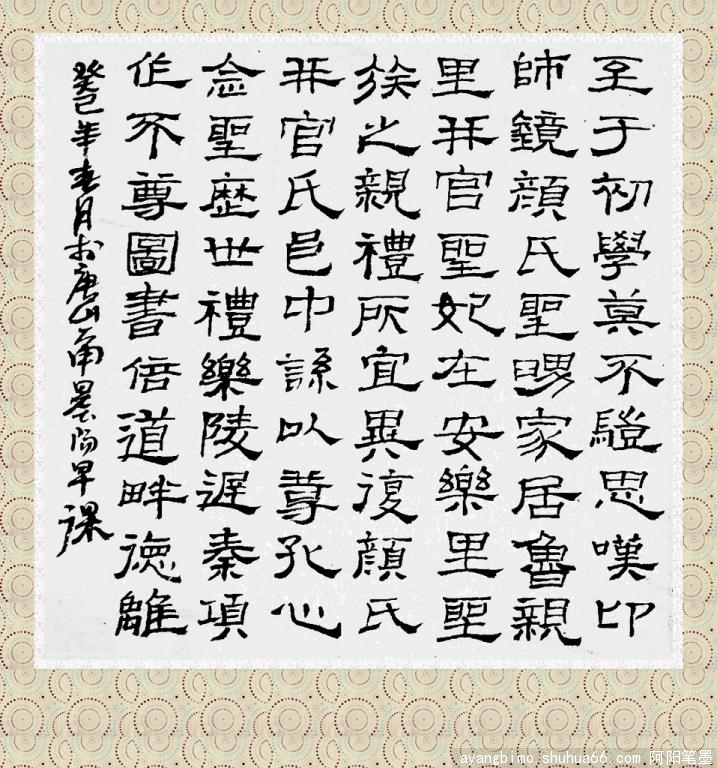 至于初學莫不思嘆卬
師鏡顏氏聖舅家居魯親
里并官聖妃在安樂里聖
族之親禮所宜異復顏氏
并官氏邑中繇以尊孔心
念聖歷世禮樂陵遲秦項
作不尊圖書倍道畔德離
癸巳年春月於唐山南陽早課
ayangbimo.shuhua66.com 阿阳笔墨